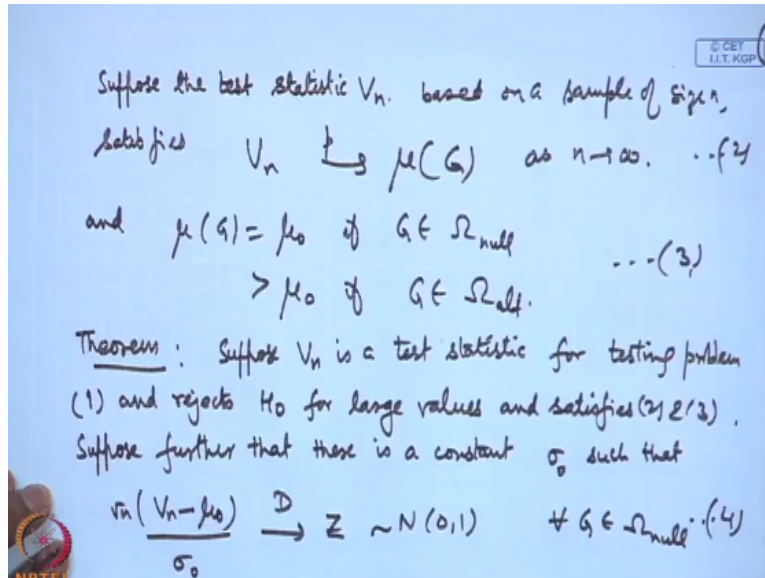 © CET
I.I.T. KGP
Suppose the test statistic Vn. based on a sample of size n,
satisfies Vn p→ μ(G) as n→∞. ...(2)
and μ(G) = μ0 if G ∈ Ωnull
> μ0 if G ∈ Ωalt. ...(3)
Theorem : Suppose Vn is a test statistic for testing problem
(1) and rejects H0 for large values and satisfies (2) & (3).
Suppose further that there is a constant σ0 such that
√n (Vn - μ0) / σ0 D→ Z ~ N(0,1) ∀ G ∈ Ωnull ..(4)
NPTEL